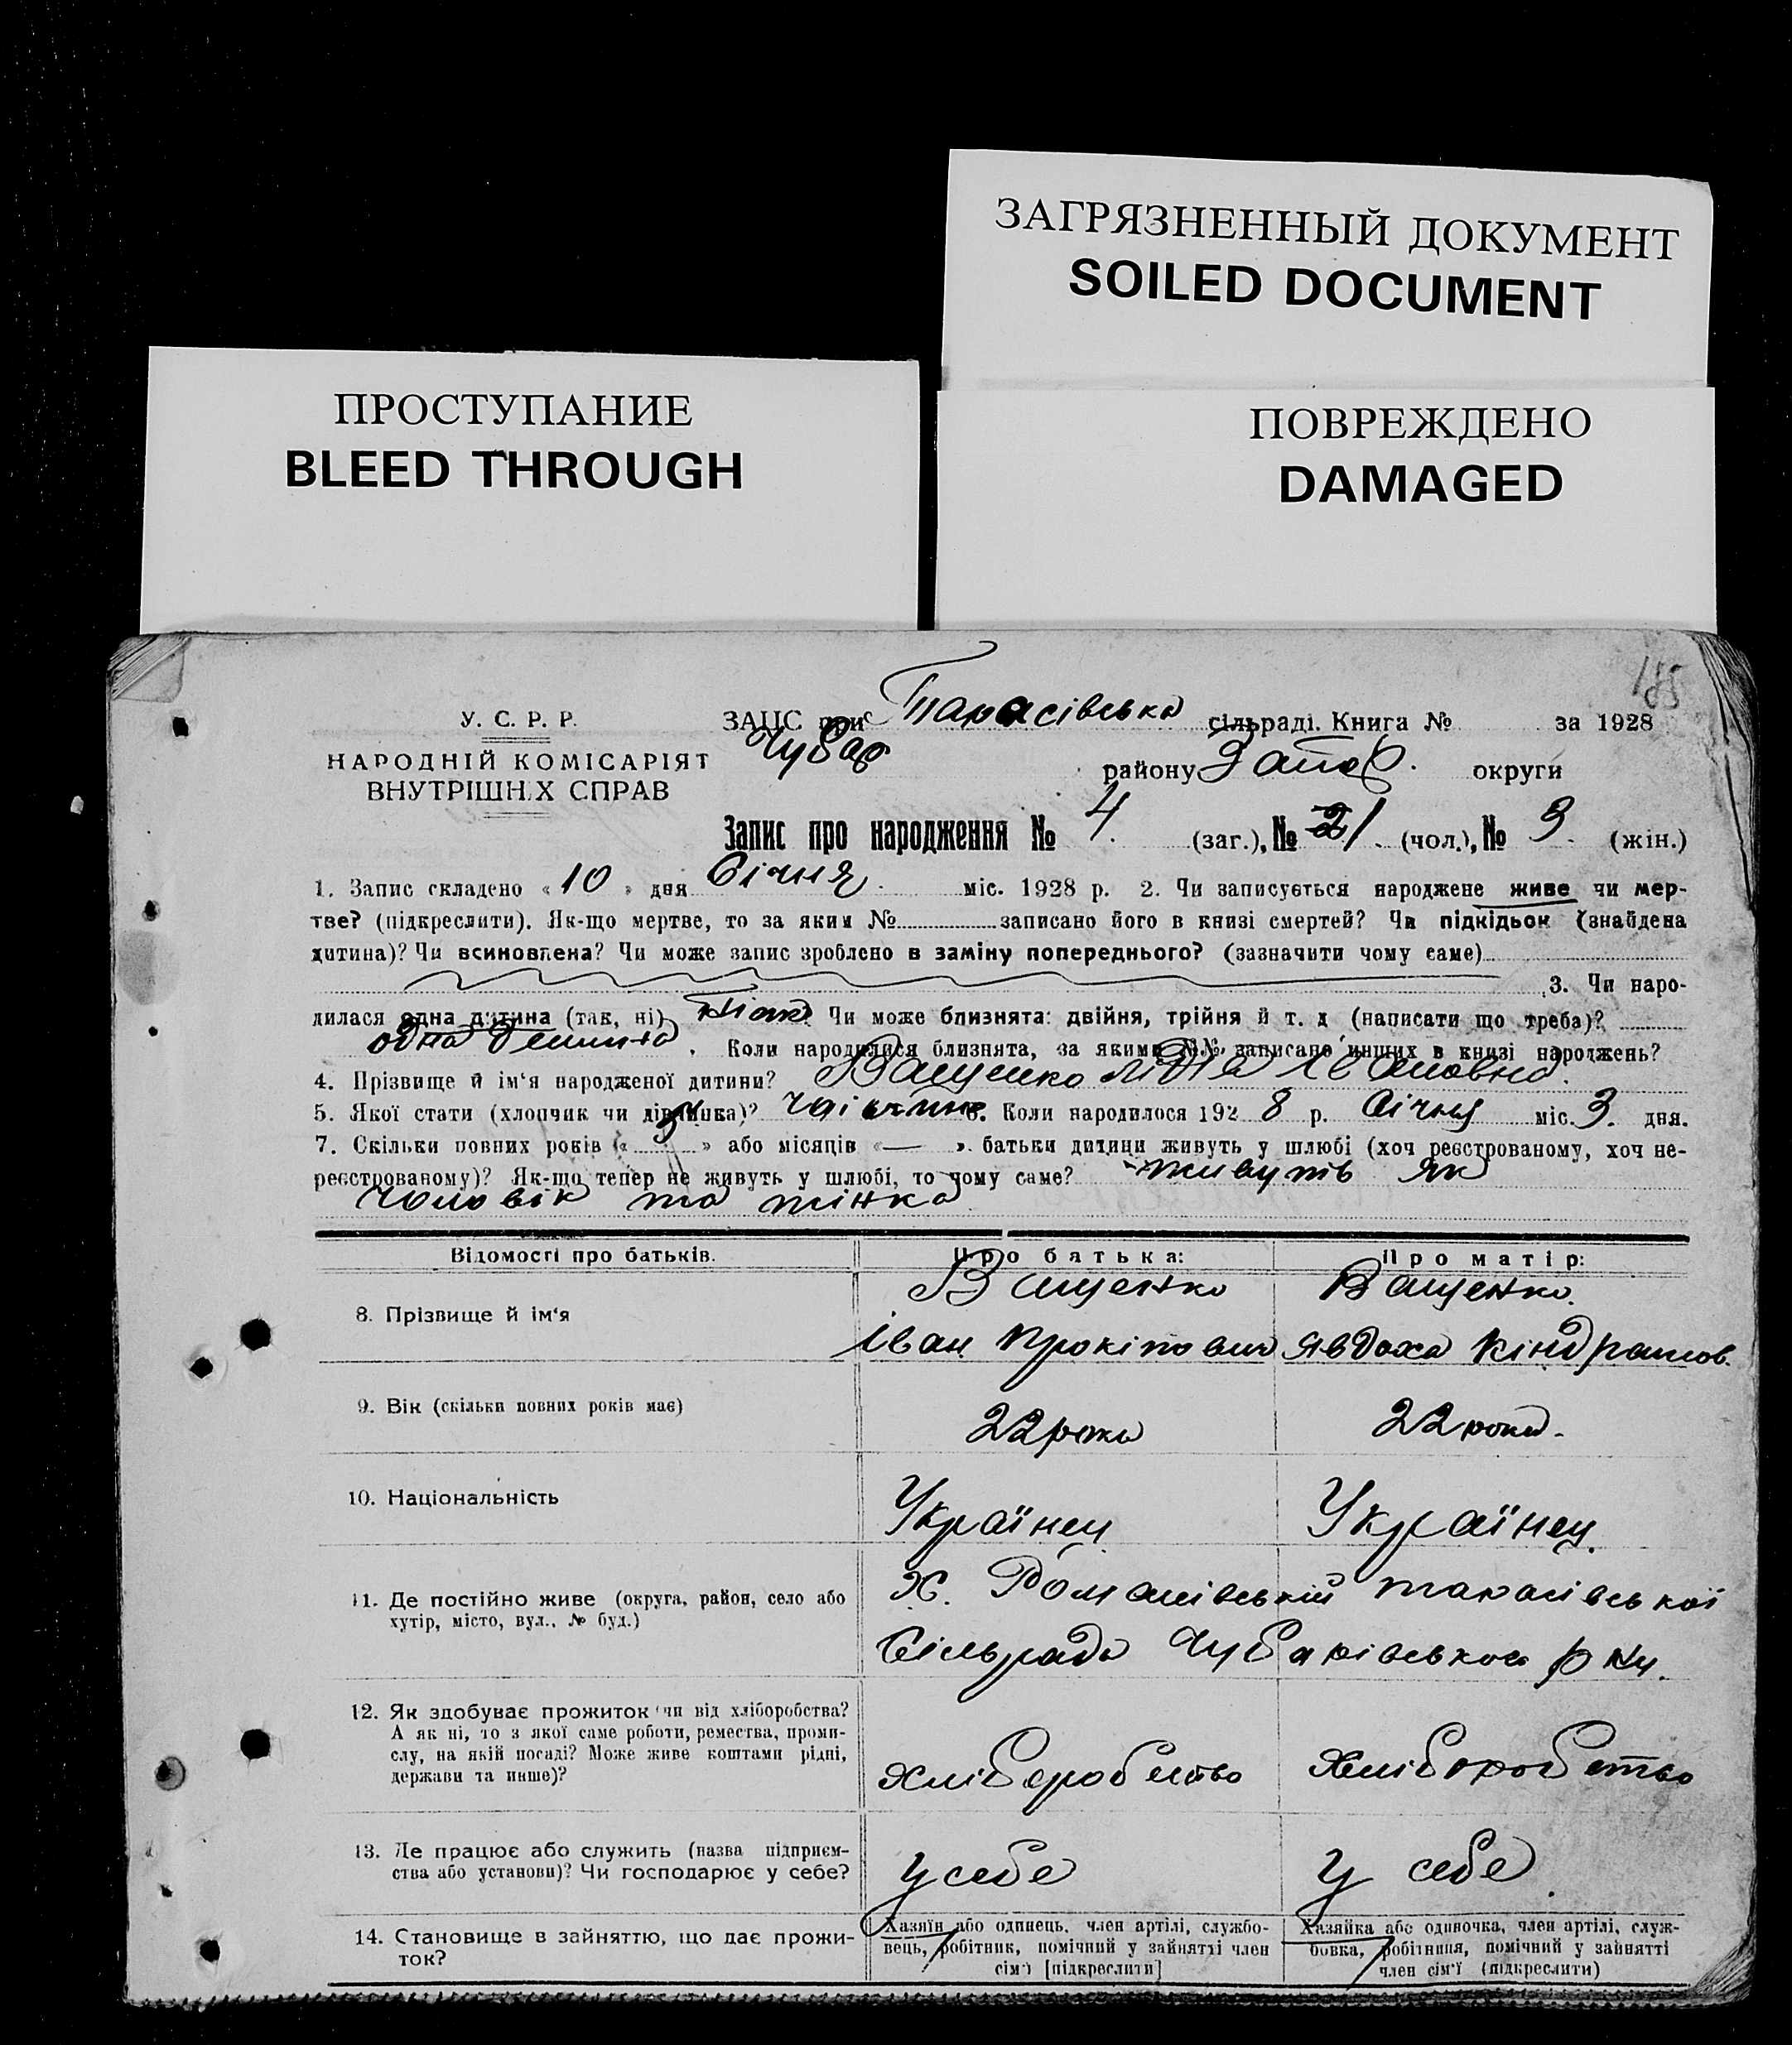 ЗАГРЯЗНЕННЫЙ ДОКУМЕНТ
SOILED DOCUMENT
ПРОСТУПАНИЕ
BLEED THROUGH
ПОВРЕЖДЕНО
DAMAGED
У. С. Р. Р.
НАРОДНІЙ КОМІСАРІЯТ
ВНУТРІШНІХ СПРАВ
ЗАЦС при Тарасівська сільраді. Книга № за 1928
Чубар району Запор. округи
Запис про народження № 4 (заг.), № 1 (чол.), № 3 (жін.)
1. Запис складено «10» дня Січня міс. 1928 р. 2. Чи записується народжене живе чи мер-
тве? (підкреслити). Як-що мертве, то за яким № записано його в книзі смертей? Чи підкідьок (знайдена
дитина)? Чи всиновлена? Чи може запис зроблено в заміну попереднього? (зазначити чому саме)
3. Чи наро-
дилася одна дитина (так, ні) так Чи може близнята: двійня, трійня й т. д (написати що треба)?
одна дитина. Коли народилися близнята, за якими №№ записано инших в книзі народжень?
4. Прізвище й ім'я народженої дитини? Ващенко Івановна
5. Якої стати (хлопчик чи дівчинка)? 6. Коли народилося 1928 р. Січня міс. 3 дня.
7. Скільки повних років «3» або місяців «—» батьки дитини живуть у шлюбі (хоч реєстрованому, хоч не-
реєстрованому)? Як-що тепер не живуть у шлюбі, то чому саме? живуть як
чоловік та жінка
Відомості про батьків. Про батька: Про матір:
8. Прізвище й ім'я
Ващенко Ващенко
Іван Прокіпович Явдоха Кіндратов.
9. Вік (скільки повних років має)
22 роки 22 роки.
10. Національність
Українец Українец.
11. Де постійно живе (округа, район, село або
хутір, місто, вул., № буд.)
Х. Романівський тарасівської
Сільради Чубарівського р-ну.
12. Як здобуває прожиток (чи від хліборобства?
А як ні, то з якої саме роботи, ремества, проми-
слу, на якій посаді? Може живе коштами рідні,
держави та инше)?
хліборобство хліборобство
13. Де працює або служить (назва підприєм-
ства або установи)? Чи господарює у себе?
у себе у себе
14. Становище в зайняттю, що дає прожи-
ток?
Хазяїн або одинець, член артілі, службо-
вець, робітник, помічний у зайнятті член
сім'ї [підкреслити]
Хазяйка або одиночка, член артілі, служ-
бовка, робітниця, помічний у зайнятті
член сім'ї (підкреслити)